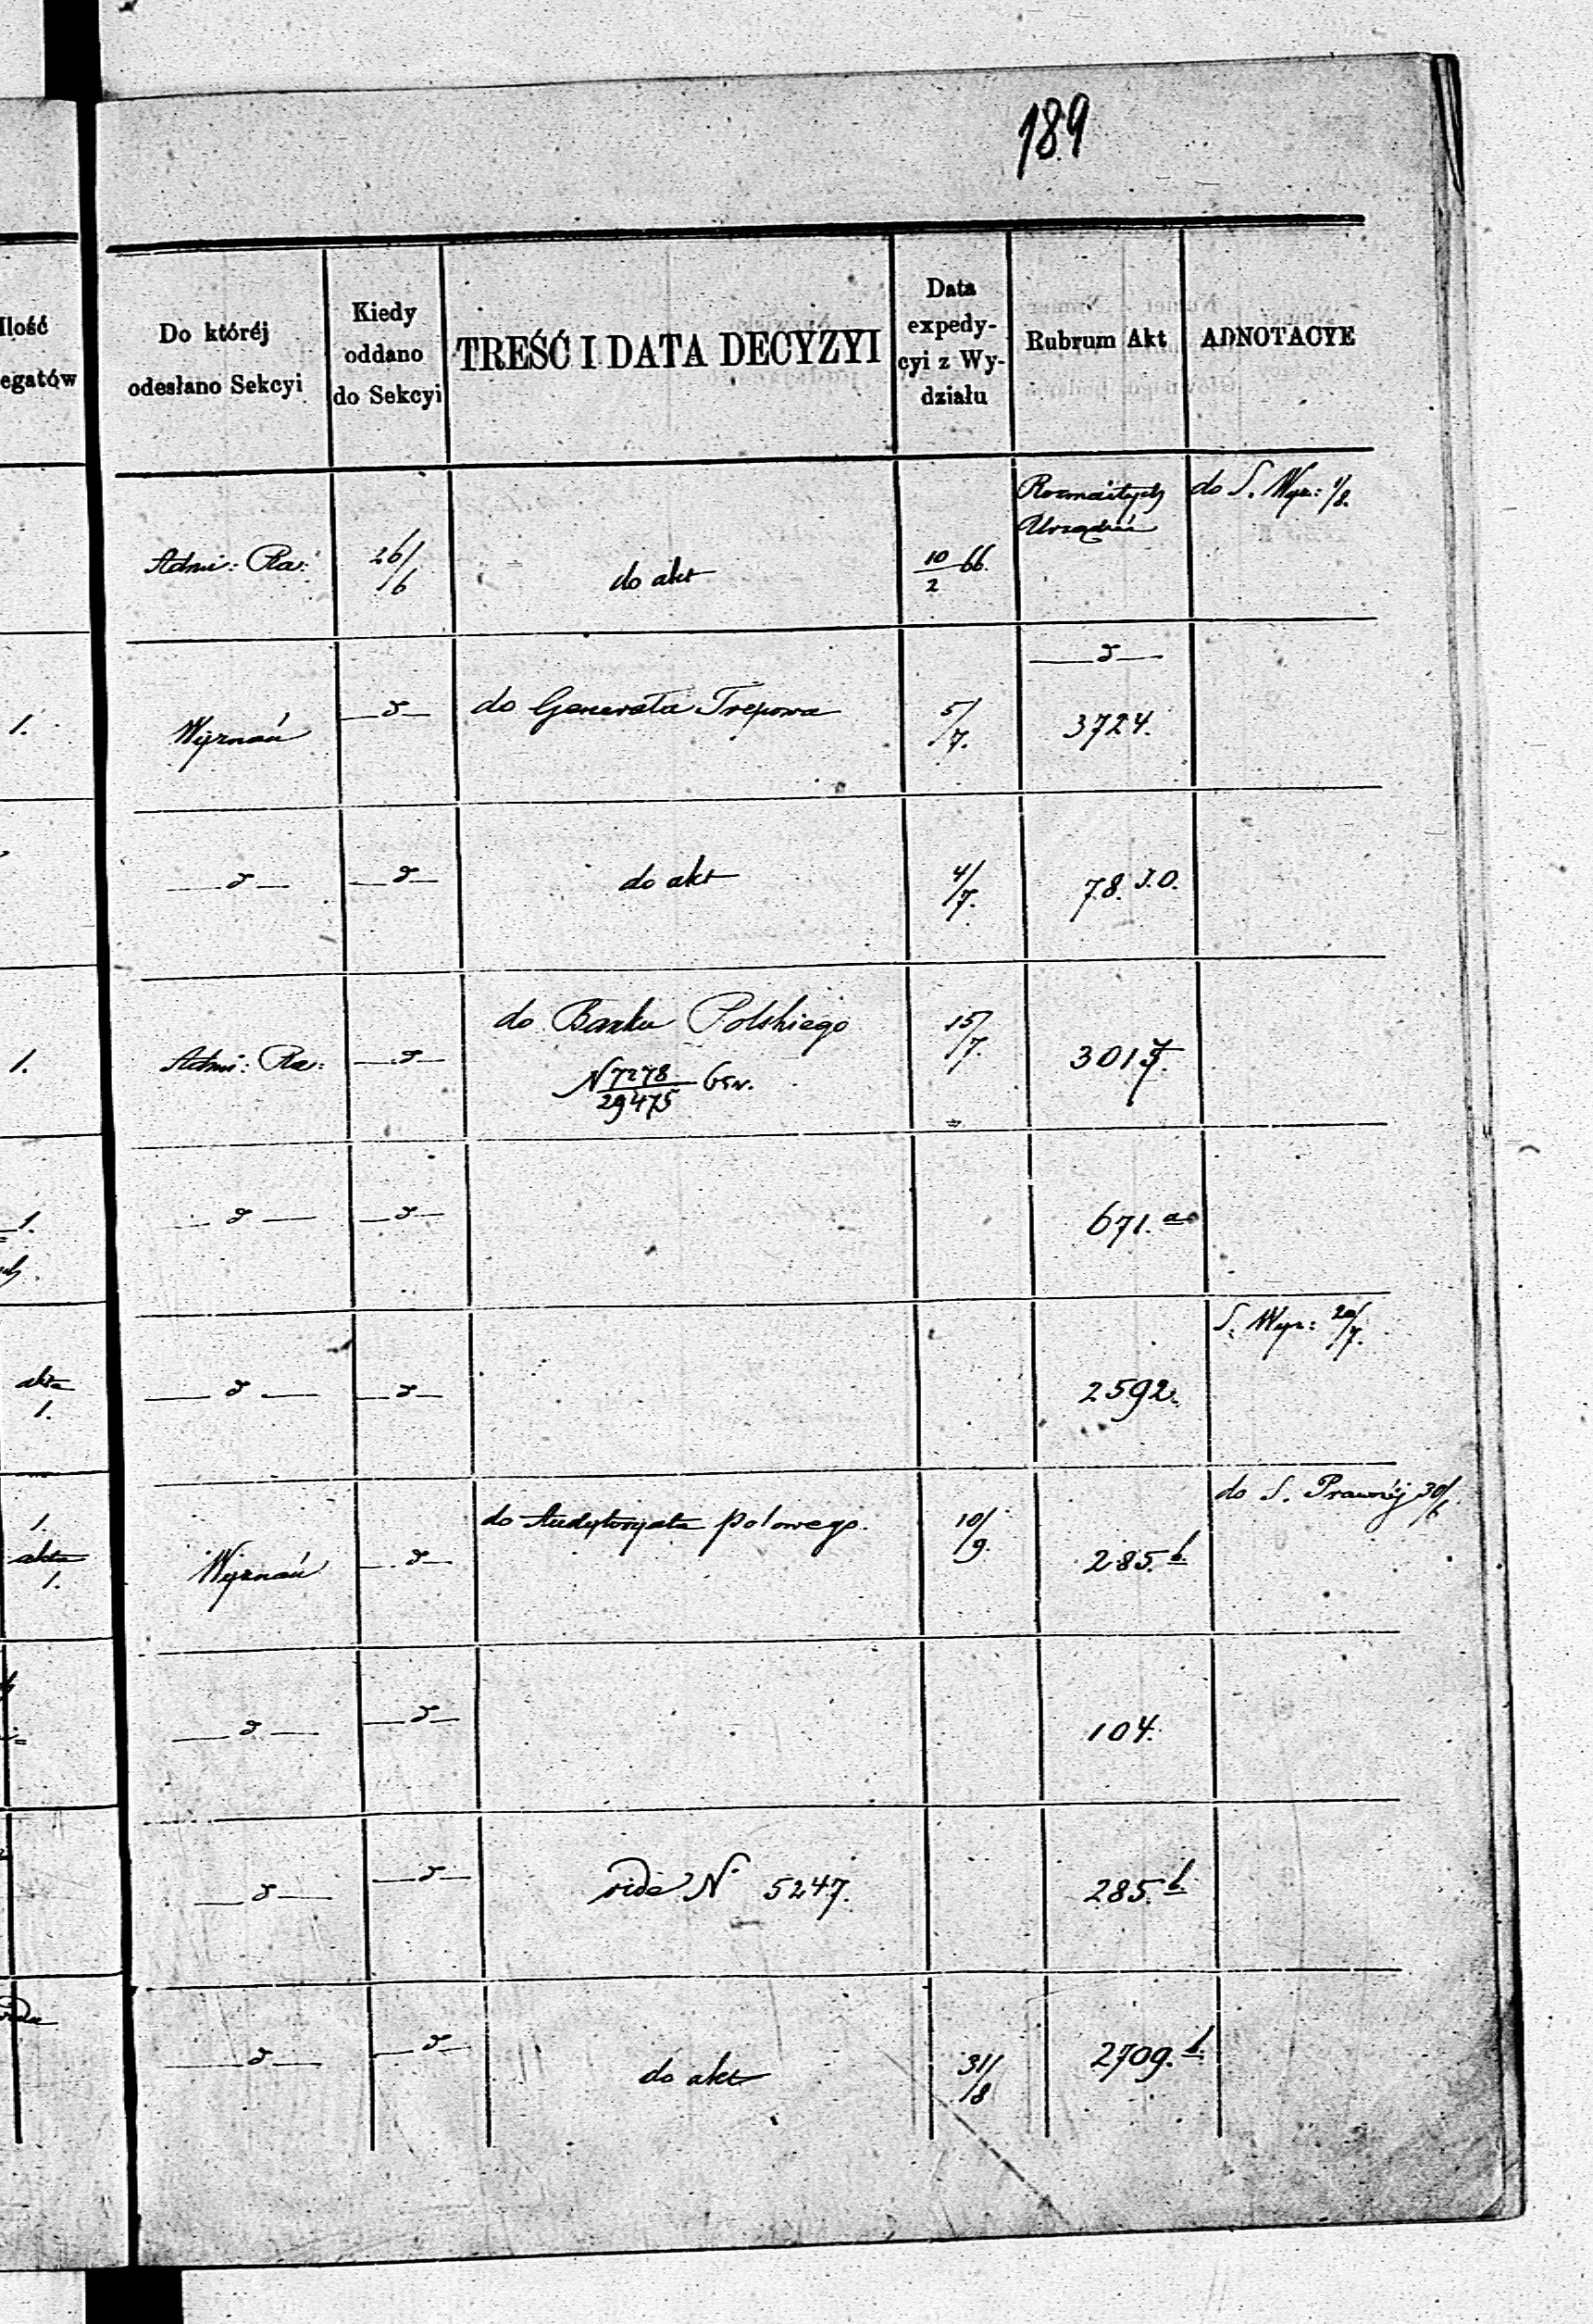 189
Ilość
egatów
Do któréj
odesłano Sekcyi
Kiedy
oddano
do Sekcyi
TREŚĆ I DATA DECYZYI
Data
expedy-
cyi z Wy-
działu
Rubrum Akt
ADNOTACYE
Admi: Ra:
26/6
do akt
10/2 66.
Rozmaitych
Urządzeń
do S. Wyz: 1/8.
1.
Wyznań
—d—
do Generała Trepowa
5/7.
—d—
3724.
—d—
—d—
do akt
4/7.
78. J.O.
1.
Admi: Ra:
—d—
do Banku Polskiego
N 7278/29475
15/7.
3017.
1.
—d—
—d—
671. a
akta
1.
—d—
—d—
2592.
S. Wyz: 20/7.
1.
akta
1.
Wyznań
—d—
do Audytoryatu polowego.
10/9.
285. b
do S. Prawnéj 30/6.
—d—
—d—
104.
—d—
—d—
vide N 5247.
285. b
—d—
—d—
do akt
31/8
2709. b